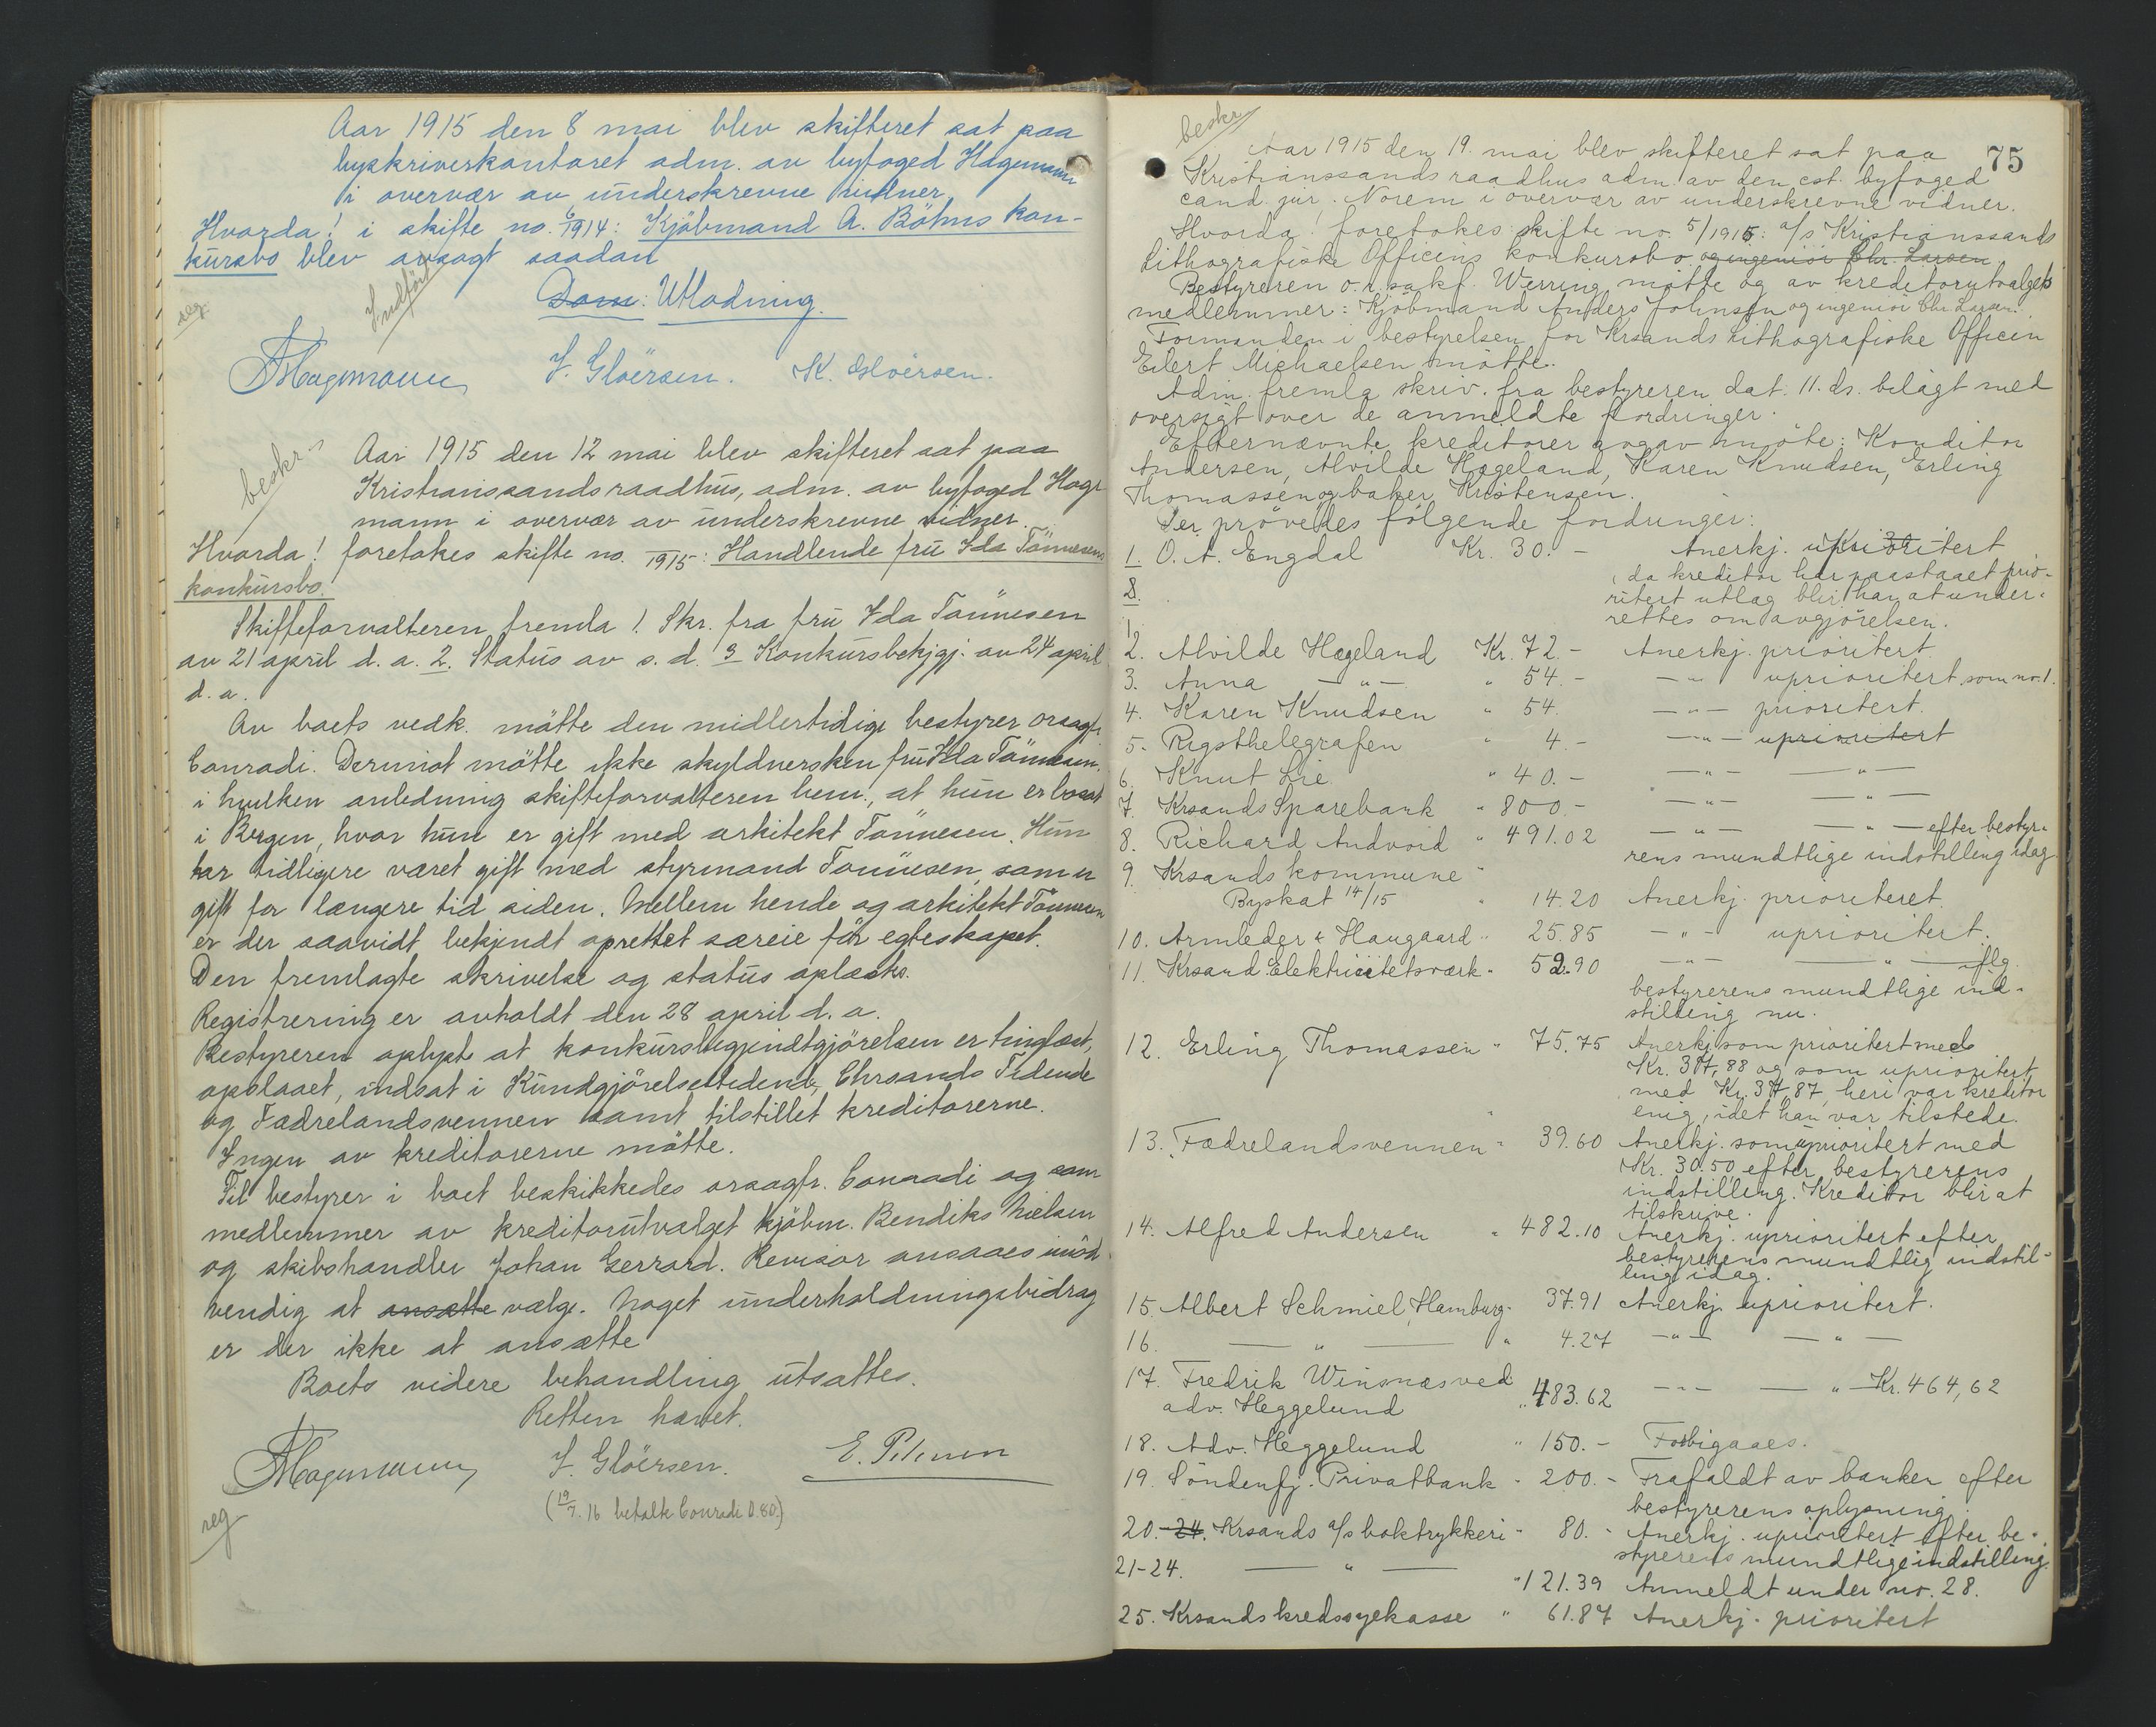 Aar 1915 den 8 mai blev skifteret sat paa
byskriverkontoret adm. av byfoged Hagemann
i overvær av underskrevne vidner.
Hvorda! i skifte no. 6/1914: Kjöbmand A. Böhms kon-
kursbo blev avsagt saadan
Indfört
reg.
Dom: Utlodning.
Hagemann J. Glöersen. K. Glöersen.
beskr.
Aar 1915 den 12 mai blev skifteret sat paa
Kristianssands raadhus, adm. av byfoged Hage
mann i overvær av underskrevne vidner.
Hvorda! foretokes skifte no. /1915: Handlende fru Ida Tönnesens
konkursbo.
Skifteforvalteren fremla 1. Skr. fra fru Ida Tönnesen
av 21 april d. a. 2. Status av s. d. 3 Konkursbekjgj. av 24 april
d. a.
Av boets vedk. mötte den midlertidige bestyrer orsagf.
Conradi. Derimot mötte ikke skyldnersken fru Ida Tönnesen.
i hvilken anledning skifteforvalteren bem., at hun er bosat
i Bergen, hvor hun er gift med arkitekt Tönnesen. Hun
har tidligere været gift med styrmand Tönnesen, som er
gift for længere tid siden. Mellem hende og arkitekt Tönnesen
er der saavidt bekjendt oprettet særeie för egteskapet.
Den fremlagte skrivelse og status oplæstes.
Registrering er avholdt den 28 april d. a.
Bestyreren oplyste at konkursbegjendtgjörelsen er tinglæst,
opslaaet, indsat i Kundgjörelsestidende, Chrsands Tidende
og Fædrelandsvennen samt tilstillet kreditorerne.
Ingen av kreditorerne mötte.
Til bestyrer i boet beskikkedes orsagfr. Conradi og som
medlemmer av kreditorutvalget kjöbm. Bendiks Nielsen
og skibshandler Johan Gerrard. Revisor ansaaes unöd-
vendig at ansætte vælge. Noget underholdningsbidrag
er der ikke at ansætte
Boets videre behandling utsattes.
Retten hævet.
Hagemann J. Glöersen. E. Petersen
(19/7. 16 betalt Conradi 0.80.)
reg
beskr.
75
Aar 1915 den 19. mai blev skifteret sat paa
Kristianssands raadhus adm. av den cst. byfoged
cand. jur. Norem i overvær av underskrevne vidner.
Hvorda! foretokes skifte no. 5/1915: a/s Kristianssands
Lithografiske Officins konkursbo. og ingeniör Chr. Larsen.
Bestyreren o.r.sakf. Werring mötte og av kreditorutvalgets
medlemmer: Kjöbmand Anders Johnsen og ingeniör Chr. Larsen.
Formanden i bestyrelsen for Krsands Lithografiske Officin
Eilert Michaelsen mötte.
Adm. fremla skriv. fra bestyreren dat. 11. ds. bilagt med
oversigt over de anmeldte fordringer.
Efternævnte kreditorer avgav möte: Konditor
Andersen, Alvilde Hægeland, Karen Knudsen, Erling
Thomassen og baker Kristensen.
Der prövedes fölgende fordringer:
1. O. A. Engdal Kr. 30.- Anerkj. uprioritert
, da kreditor har paastaaet prio-
ritert utlæg blir han at under-
rettes om avgjörelsen.
2. Alvilde Hægeland Kr. 72.- Anerkj. prioritert.
3. Anna —"— " 54.- —"— uprioritert som no. 1.
4. Karen Knudsen " 54. —"— prioritert.
5. Rigsthelegrafen " 4.- —"— uprioritert
6. Knut Lie " 40.- —"— —"—
7. Krsands Sparebank " 800.- —"— —"—
8. Richard Andvord " 491.02 —"— —"— efter besty-
rens mundtlige indstilling idag
9. Krsands kommune
Byskat 14/15 " 14.20 Anerkj. prioriteret.
10. Armleder & Haugaard " 25.85 —"— uprioritert.
11. Krsand Elektricitetsværk " 52.90 —"— —"— flg.
bestyrerens mundtlige ind-
stilling nu.
12. Erling Thomassen " 75.75 Anerkj. som prioritert med
Kr. 37,88 og som uprioritert
med Kr. 37,87, heri var kreditor
enig, idet han var tilstede.
13. Fædrelandsvennen " 39.60 Anerkj. som uprioritert med
Kr. 30.50 efter bestyrerens
indstilling. Kreditor blir at
tilskrive.
14. Alfred Andersen " 482.10 Anerkj. uprioritert efter
bestyrerens mundtlig indstil-
ling idag.
15. Albert Schmiel, Hamburg " 37.91 Anerkj. uprioritert.
16. —"— " 4.27 —"— —"—
17. Fredrik Winsnæs ved
adv. Heggelund " 483.62 —"— —"— Kr. 464,62
18. Adv. Heggelund " 150.- Forbigaaes.
19. Söndenfj. Privatbank " 200.- Frafaldt av banken efter
bestyrerens oplysning.
20.-24. Krsands a/s boktrykkeri " 80.- Anerkj. uprioritert efter be-
styrerens mundtlige indstilling.
21-24. —"— " 121.39 Anmeldt under no. 28.
25. Krsands kredssykekasse " 61.87 Anerkj. prioritert